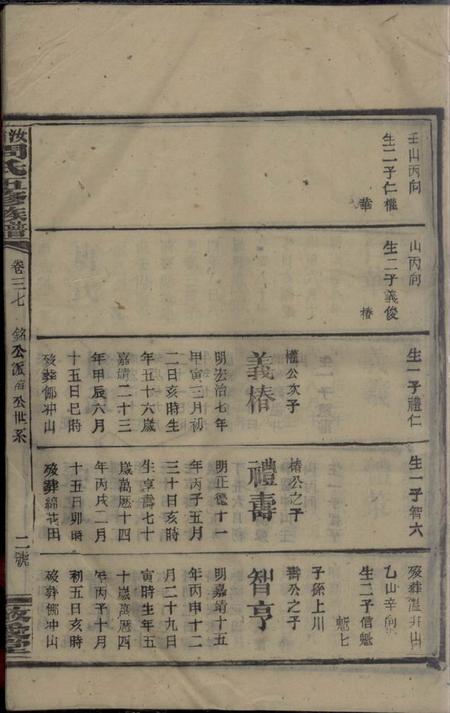 壬山丙向
生二子仁權
華
山丙向
生二子義俊
椿
生一子禮仁
權公次子
義椿
明宏治七年
甲寅三月初
二日亥時生
年五十六歲
嘉靖二十三
年甲辰六月
十五日巳時
歿葬鄉冲山
生一子智六
椿公之子
禮壽
明正德十一
年丙子五月
三十日亥時
生享壽七十
歲萬曆十四
年丙戌二月
十五日卯時
歿葬綿花田
歿葬
山
乙山辛向
生二子信魁
魁七
子孫上川
壽公之子
智亨
明嘉靖十五
年丙申十二
月二十九日
寅時生年五
十歲萬曆四
年丙子十月
初五日亥時
歿葬鄉冲山
周氏五修族譜
卷三七
銘公派
公世系
二號